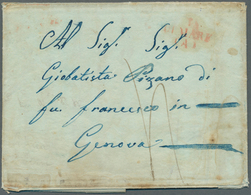 Al Sig.r Sig.r
Giobatista Pizano di
fu francesco in
Genova